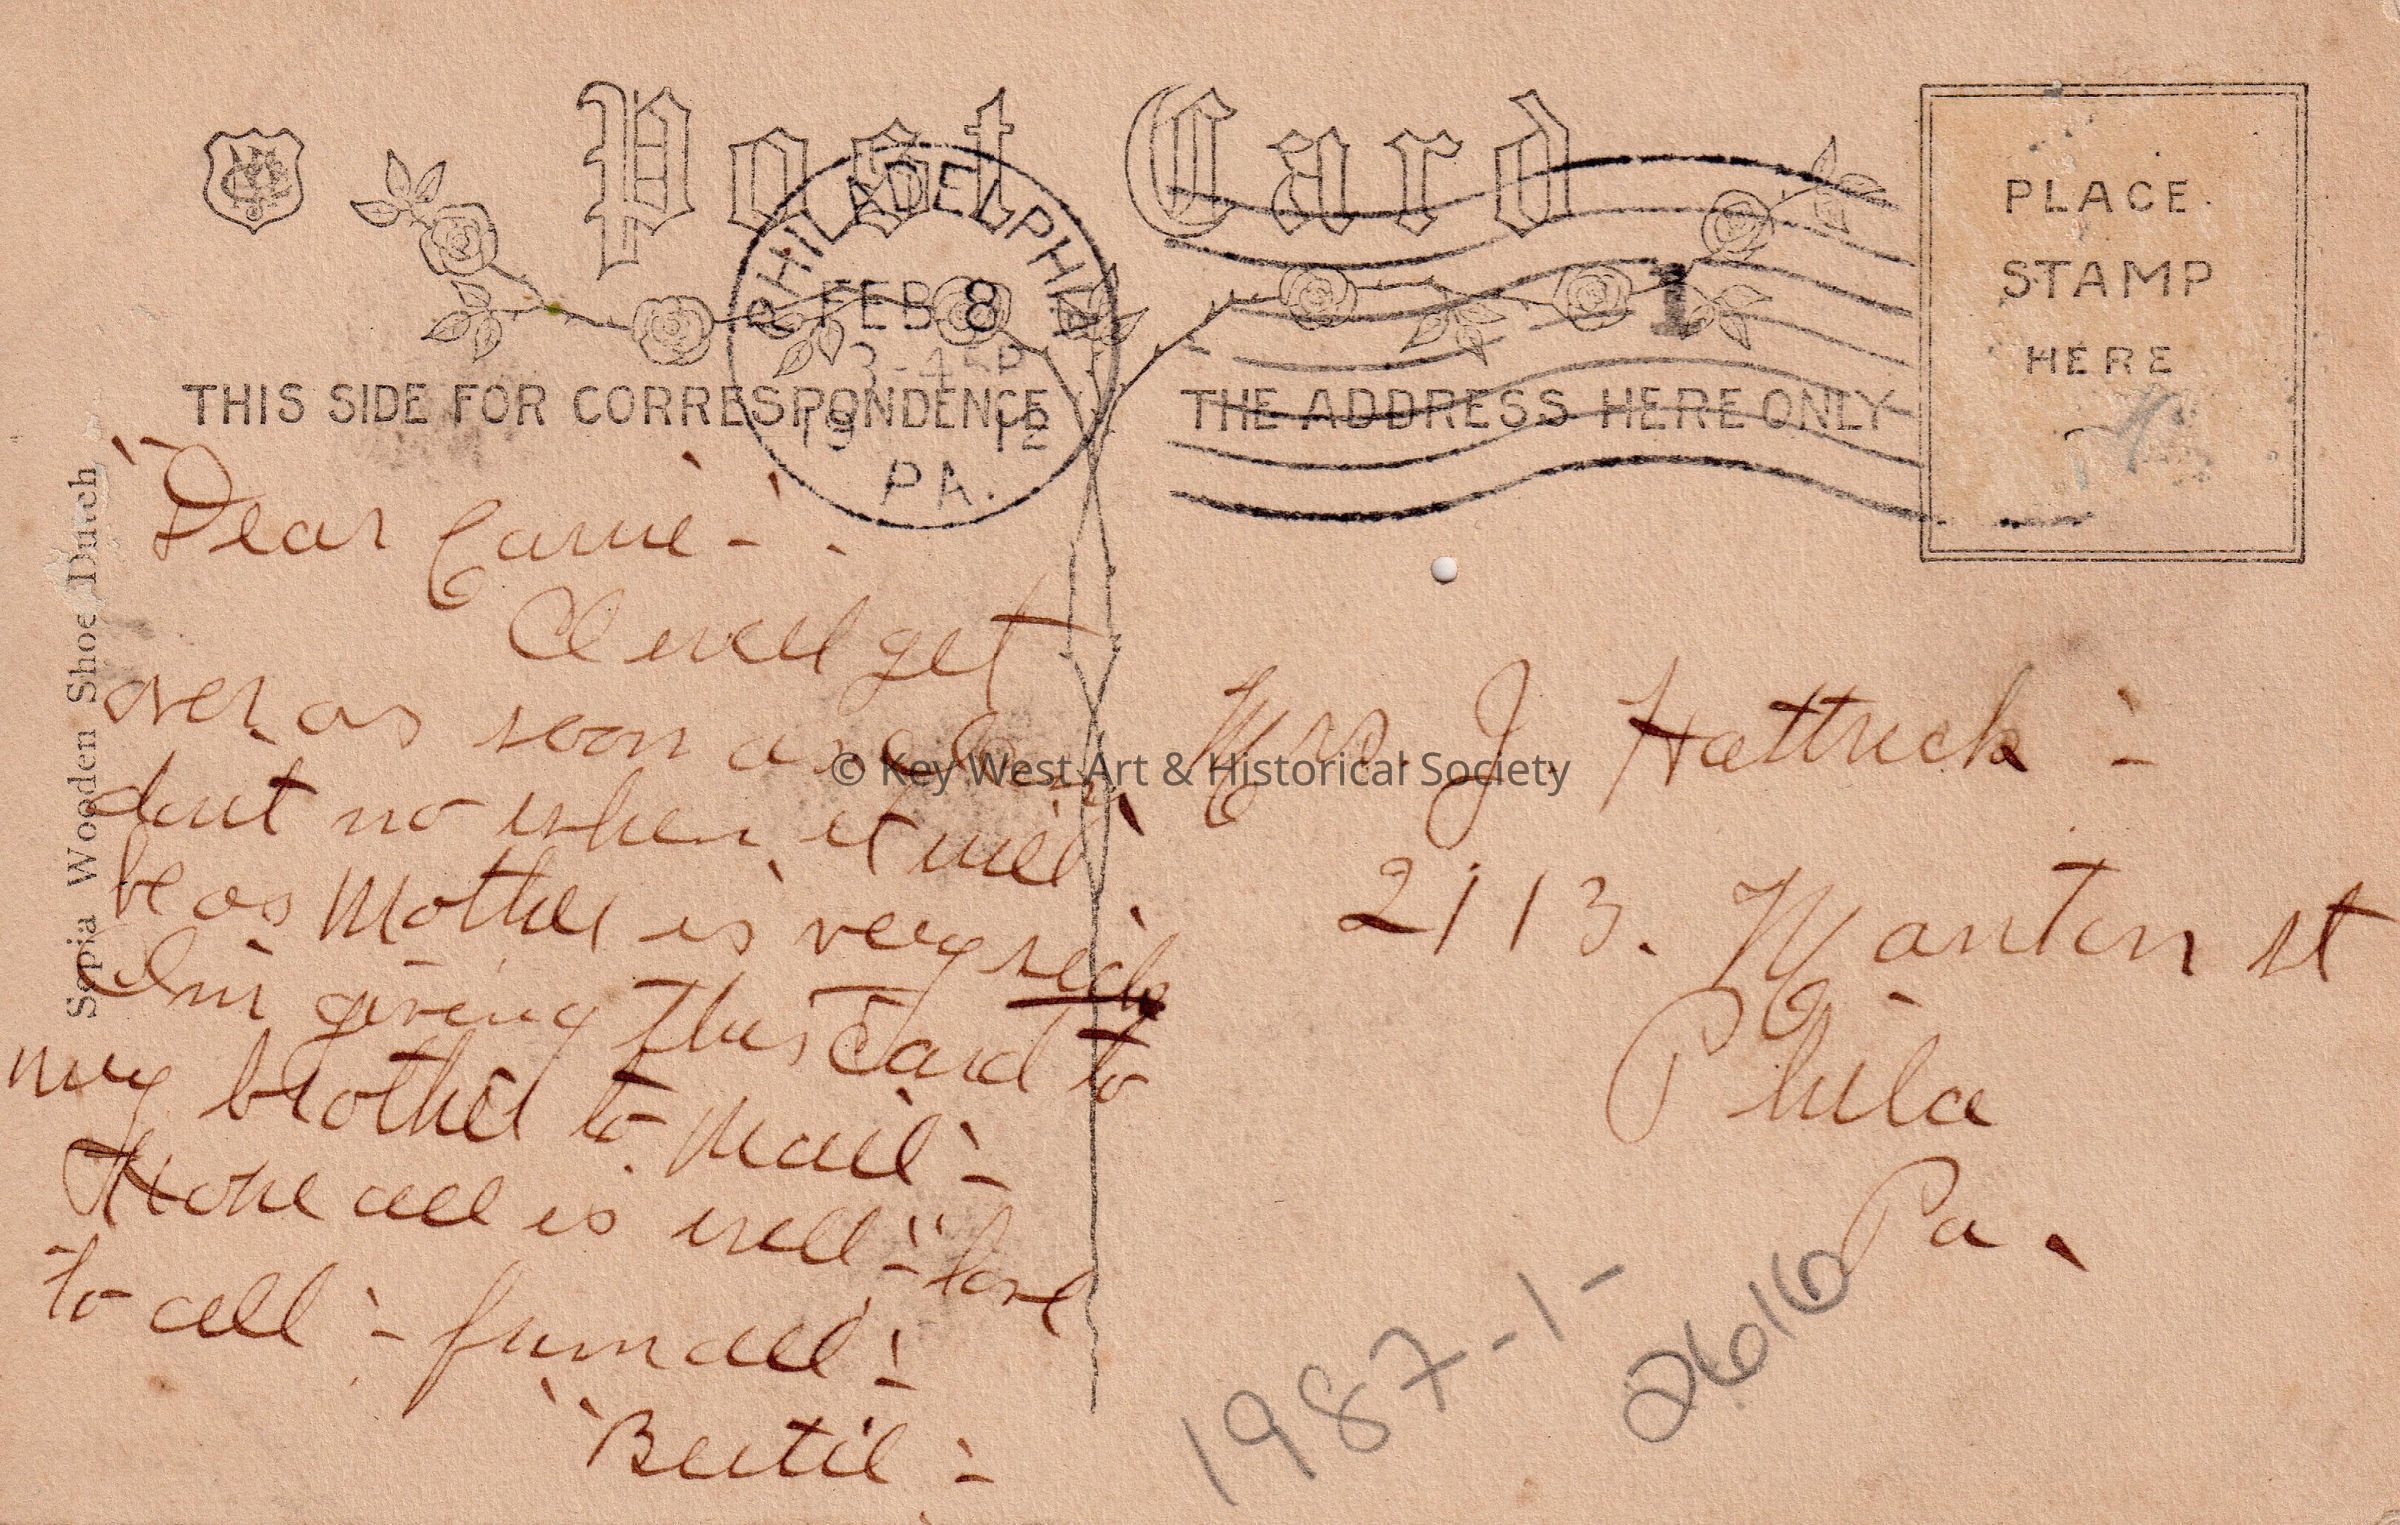 Post Card
PHILADELPHIA
FEB 8
3-45P
1912
PA.
1
THIS SIDE FOR CORRESPONDENCE
THE ADDRESS HERE ONLY
PLACE
STAMP
HERE
Sepia Wooden Shoe Dutch
"Dear Carrie -"
I will get
over as soon as I can
dont no when it will
be as Mother is very sick
I'm giving this Card to
my brother to mail -
Hope all is well - "love
to all - from all -
"Bertie -
Mrs. J. Hattrick -
2113. Manton st
Phila
Pa.
1987-1-
2616
© Key West Art & Historical Society